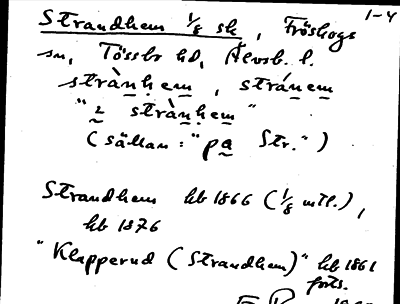 1-4
Strandhem 1/8 sk, Fröskogs
sn, Tössbo hd, Älvsb. l.
strànhem, stránem
"i strànhem"
(sällan: "på Str.")
Strandhem hb 1866 (1/8 mtl.),
hb 1876
"Klapperud (Strandhem)" hb 1861
forts.